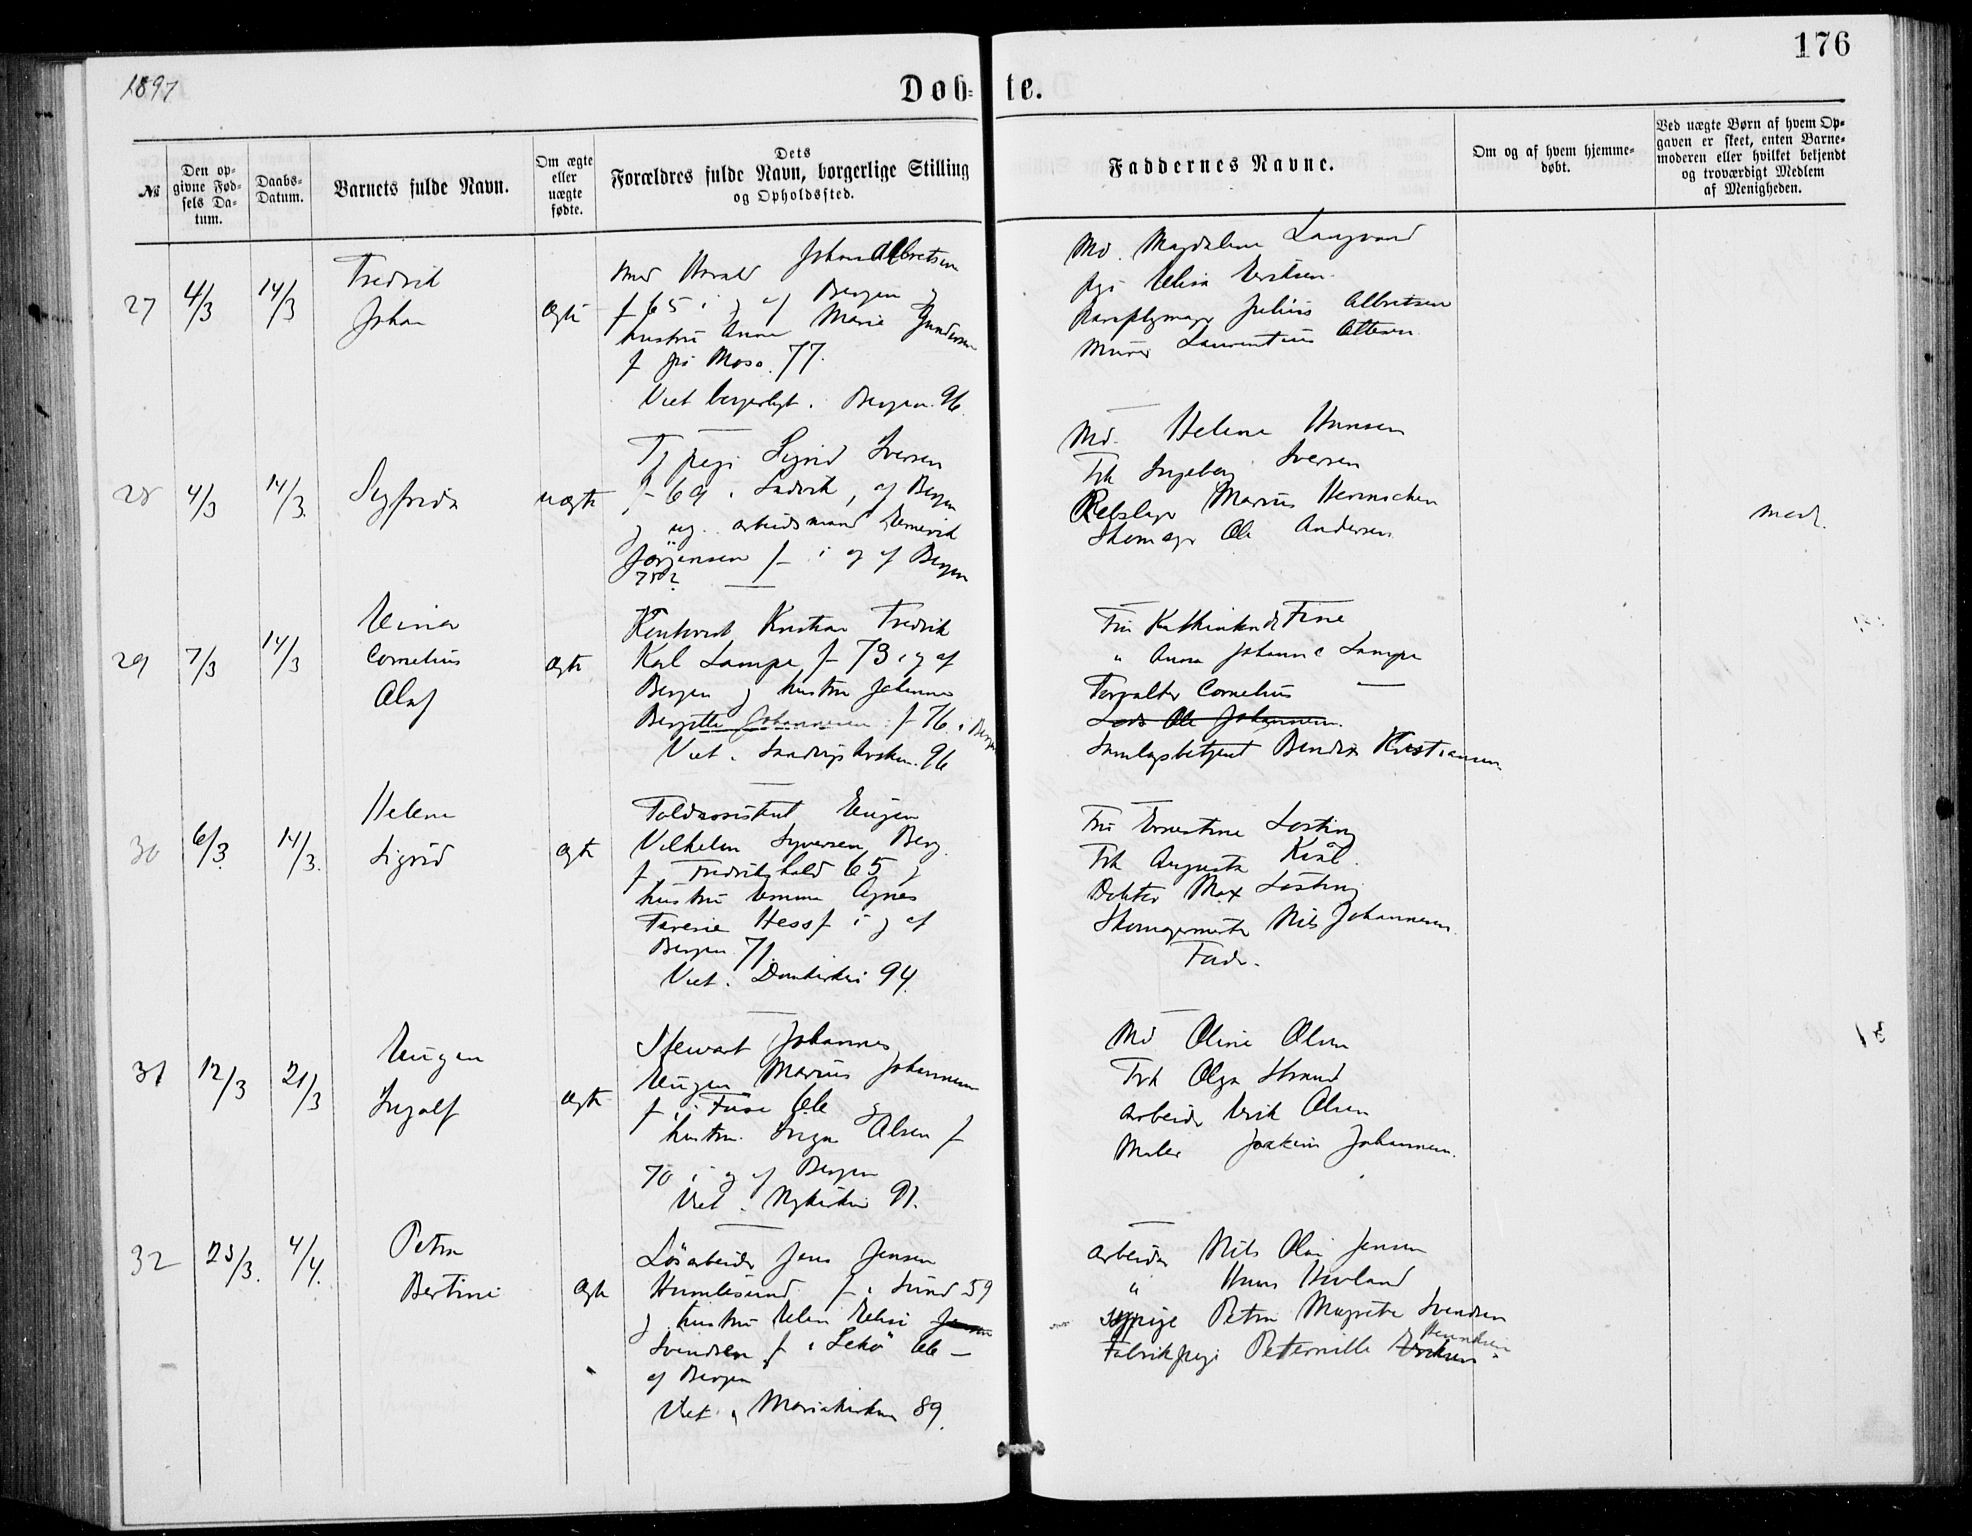 1897
176
Døb-te.
№
Den opgivne Fødsels Datum.
Daabs-Datum.
Barnets fulde Navn.
Om ægte eller uægte fødte.
Dets Forældres fulde Navn, borgerlige Stilling og Opholdssted.
Faddernes Navne.
Om og af hvem hjemmedøbt.
Ved uægte Børn af hvem Opgaven er skeet, enten Barnemoderen eller hvilket bekjendt og troværdigt Medlem af Menigheden.
27 4/3 14/3 Fredrik Johan Ægte
Harald Johan Albretsen
f 65 i og af Bergen og
hustru Anna Marie Gundersen
f på Moss 77.
Viet borgerligt i Bergen 96.
Md. Magdalene Langvand
pige Elisa
Julius Albretsen
Murer Laurentius
28 4/3 14/3 Sigfrida uægte
Tj pige Sigrid Iversen
f 69 i Ladvik, af Bergen
og ug. arbeidsmand
Jørgensen f i og af Bergen
75?
Md. Helene Hansen
Frk Ingeborg Iversen
Rebslager Marius
Skomager Ole Andersen
mod.
29 7/3 14/3 Einar Cornelius Olaf ægte
Kontorist Kristian Fredrik
Karl Lampe f 73 i og af
Bergen og hustru Johanne
Bergitte Johannesen f 76 i Bergen
Viet i Sandvigskirken 96
Fru
" Anna Johanne Lampe
Forvalter Cornelius —
Lods Ole Johannesen.
Samlagsbetjent Kristiansen
30 6/3 14/3 Helene Sigrid ægte
Toldassistent Eugen
Vilhelm Syversen Berg
f Fredrikshald 65 og
hustru Emma Agnes
Hess f i og af
Bergen 71.
Viet i Domkirken 94.
Fru Ernestine Losting
Frk Augusta
Doktor Max Losting
Skomagermester Nils Johannesen
Fader.
31 12/3 21/3 Eugen Ingolf ægte
Stewart Johannes
Eugen Marius Johannesen
f i Fuse 66 og
hustru Inga Olsen f
70 i og af Bergen
Viet i Nykirken 91.
Md Oline Olsen
Frk Olga Strand
Arbeider Erik Olsen
Maler Joakim Johannesen.
32 23/3. 4/4. Petra Bertine ægte
Løsarbeider Jens Jensen
Humlesund f i Sund 59
og hustru Elen Elise
Svendsen f i Askø 66 —
af Bergen
Viet i Mariakirken 89.
Arbeider Nils Olai Jensen
" Hans Hovland
Sypige Petra Magrete Svendsen
Fabrikpige Peternille Henriksen